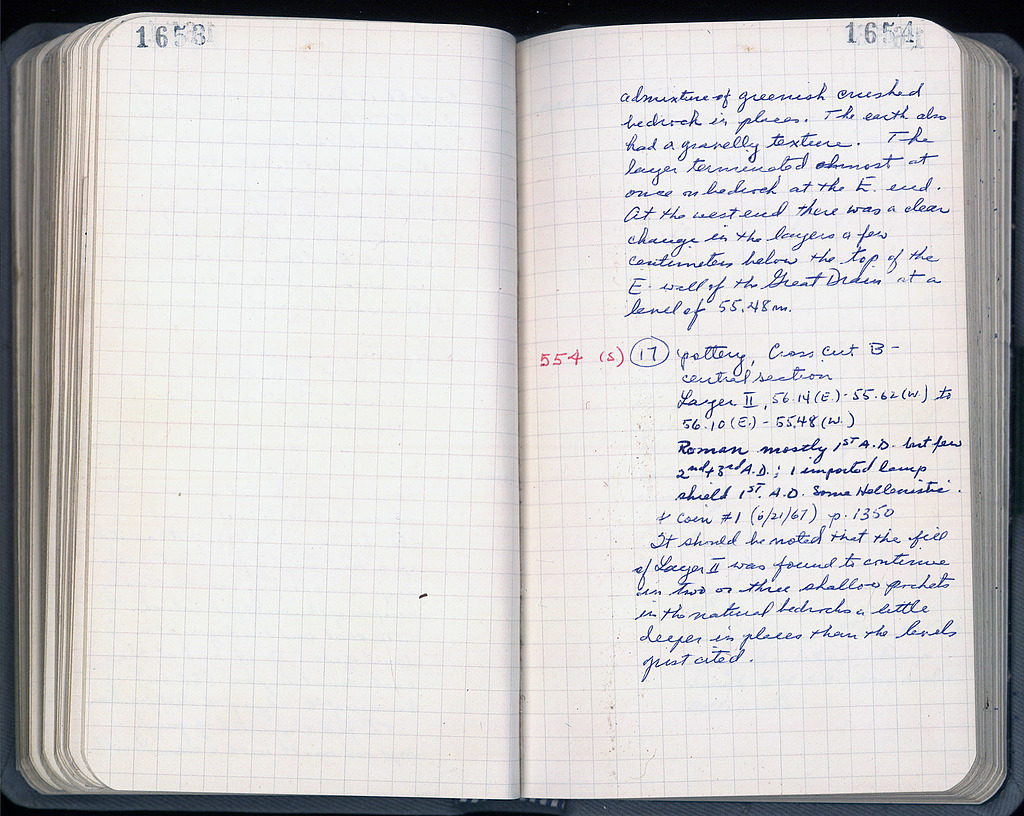 1653
1654
admixture of greenish crushed
bedrock in places. The earth also
had a gravelly texture. The
layer terminated almost at
once on bedrock at the E. end.
At the west end there was a clear
change in the layers a few
centimeters below the top of the
E. wall of the Great Drain at a
level of 55.48m.
554 (S) 17 pottery, Cross cut B -
central section
Layer II, 56.14 (E.) - 55.62 (W.) to
56.10 (E.) - 55.48 (W.)
Roman mostly 1ST A.D. but few
2nd + 3rd A.D.; 1 imported lamp
shield 1ST. A.D. Some Hellenistic.
+ coin #1 (6/21/67) p. 1350
It should be noted that the fill
of Layer II was found to continue
in two or three shallow pockets
in the natural bedrock a little
deeper in places than the levels
just cited.